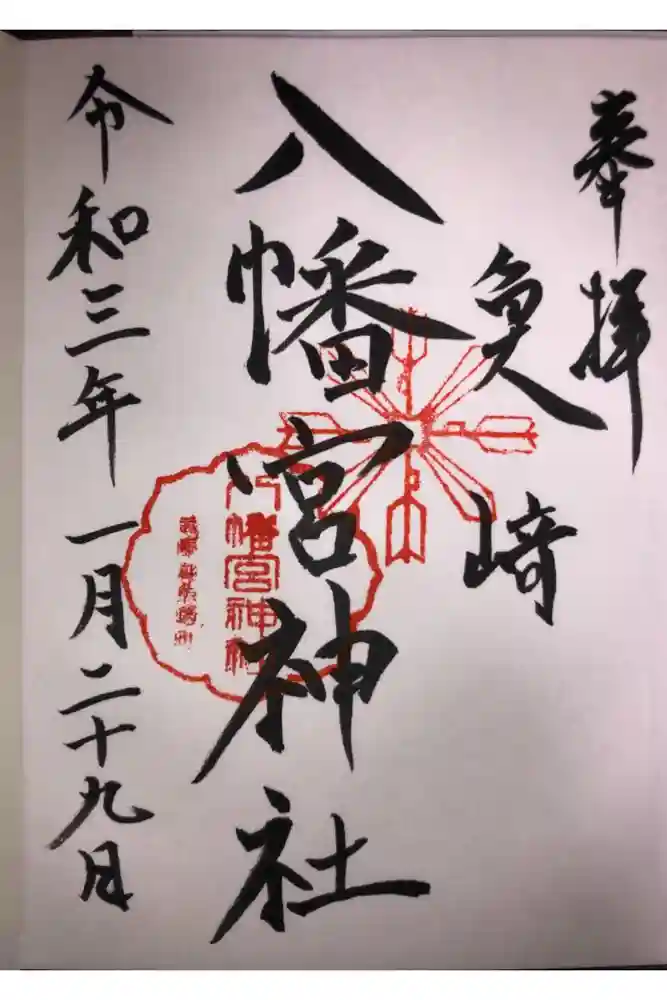 奉拝
魚崎
八幡宮神社
八幡宮神社
令和三年一月二十九日